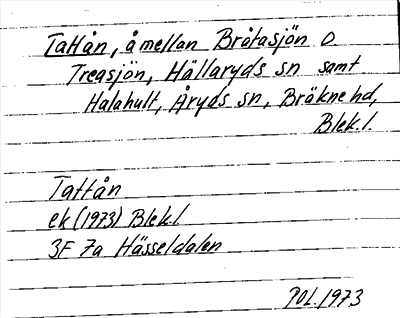 Tattån, å mellan Bråtasjön o
Treasjön, Hällaryds sn samt
Halahult, Åryds sn, Bräkne hd,
Blek.l.
Tattån
ek (1973) Blek.l
3F 7a Hässeldalen
POL. 1973